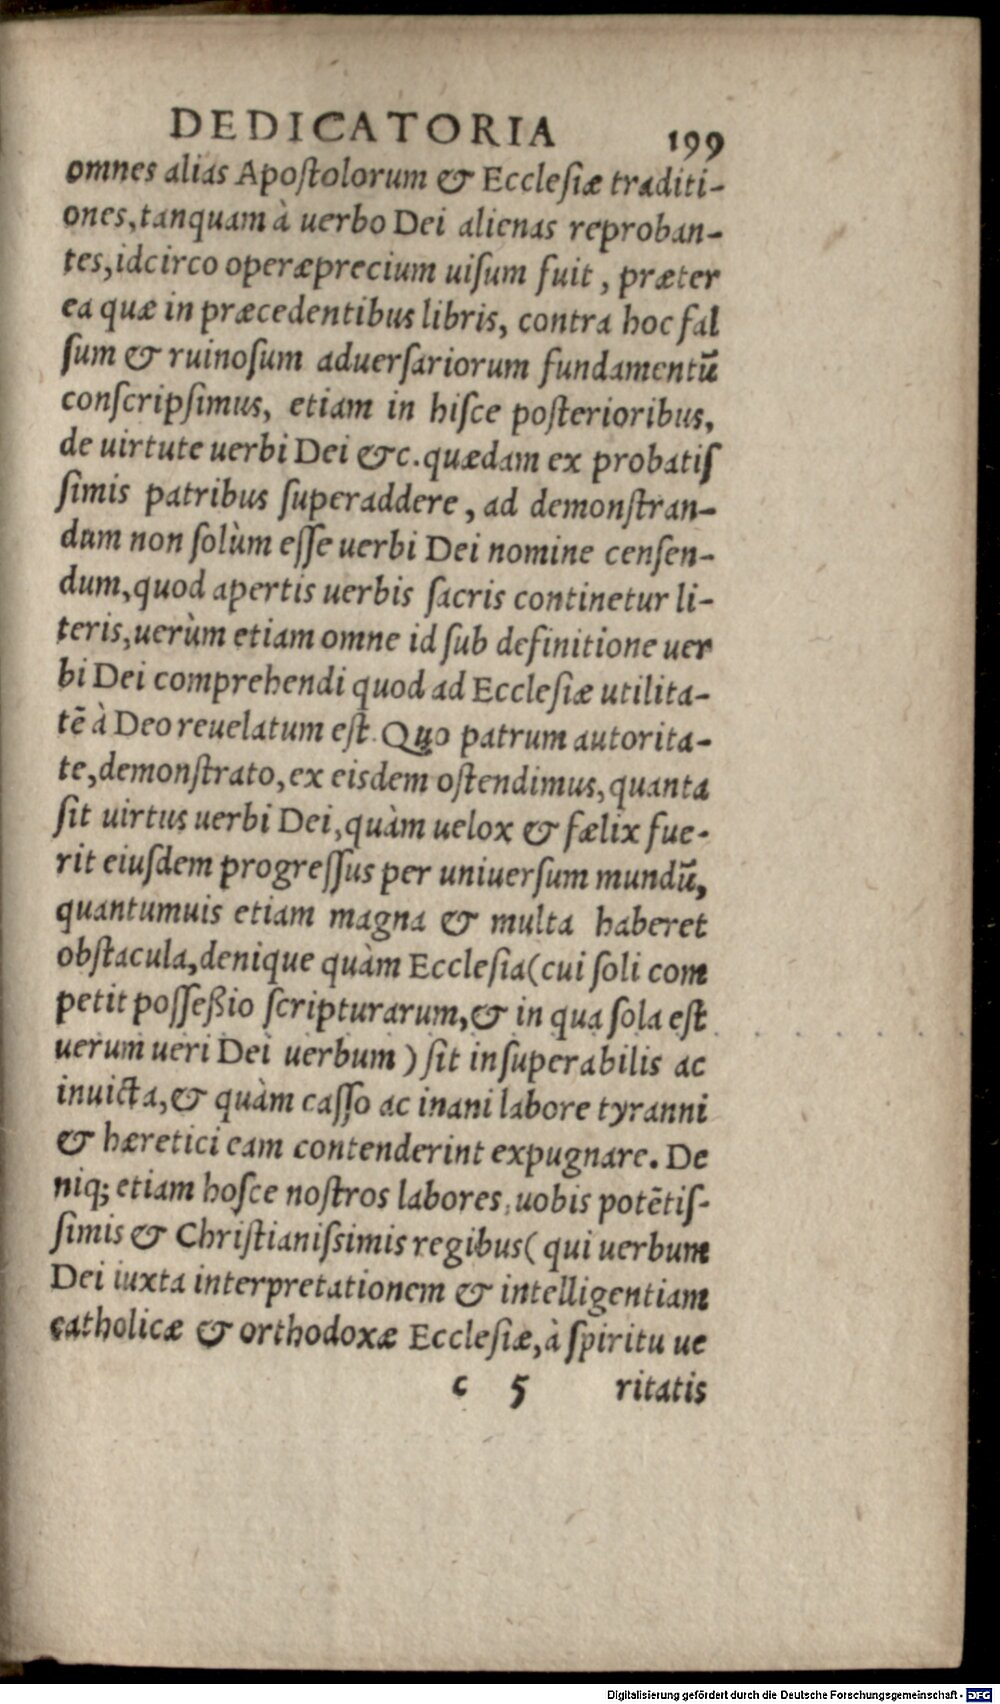 DEDICATORIA 199
omnes alias Apoſtolorum & Eccleſiæ traditi-
ones, tanquam à uerbo Dei alienas reproban-
tes, idcirco operæprecium uiſum fuit, præter
ea quæ in præcedentibus libris, contra hoc fal
ſum & ruinoſum aduerſariorum fundamentū
conſcripſimus, etiam in hiſce poſterioribus,
de uirtute uerbi Dei &c. quædam ex probatiſ
ſimis patribus ſuperaddere, ad demonſtran-
dum non ſolùm eſſe uerbi Dei nomine cenſen-
dum, quod apertis uerbis ſacris continetur li-
teris, uerùm etiam omne id ſub definitione uer
bi Dei comprehendi quod ad Eccleſiæ utilita-
tē à Deo reuelatum eſt. Quo patrum autorita-
te, demonſtrato, ex eisdem oſtendimus, quanta
ſit uirtus uerbi Dei, quàm uelox & fælix fue-
rit eiuſdem progreſſus per uniuerſum mundū,
quantumuis etiam magna & multa haberet
obſtacula, denique quàm Eccleſia (cui ſoli com
petit poſſeßio ſcripturarum, & in qua ſola eſt
uerum ueri Dei uerbum) ſit inſuperabilis ac
inuicta, & quàm caſſo ac inani labore tyranni
& hæretici eam contenderint expugnare. De
niq; etiam hoſce noſtros labores, uobis potētiſ-
ſimis & Chriſtianiſsimis regibus (qui uerbum
Dei iuxta interpretationem & intelligentiam
catholicæ & orthodoxæ Eccleſiæ, à ſpiritu ue
c 5 ritatis
Digitalisierung gefördert durch die Deutsche Forschungsgemeinschaft - DFG